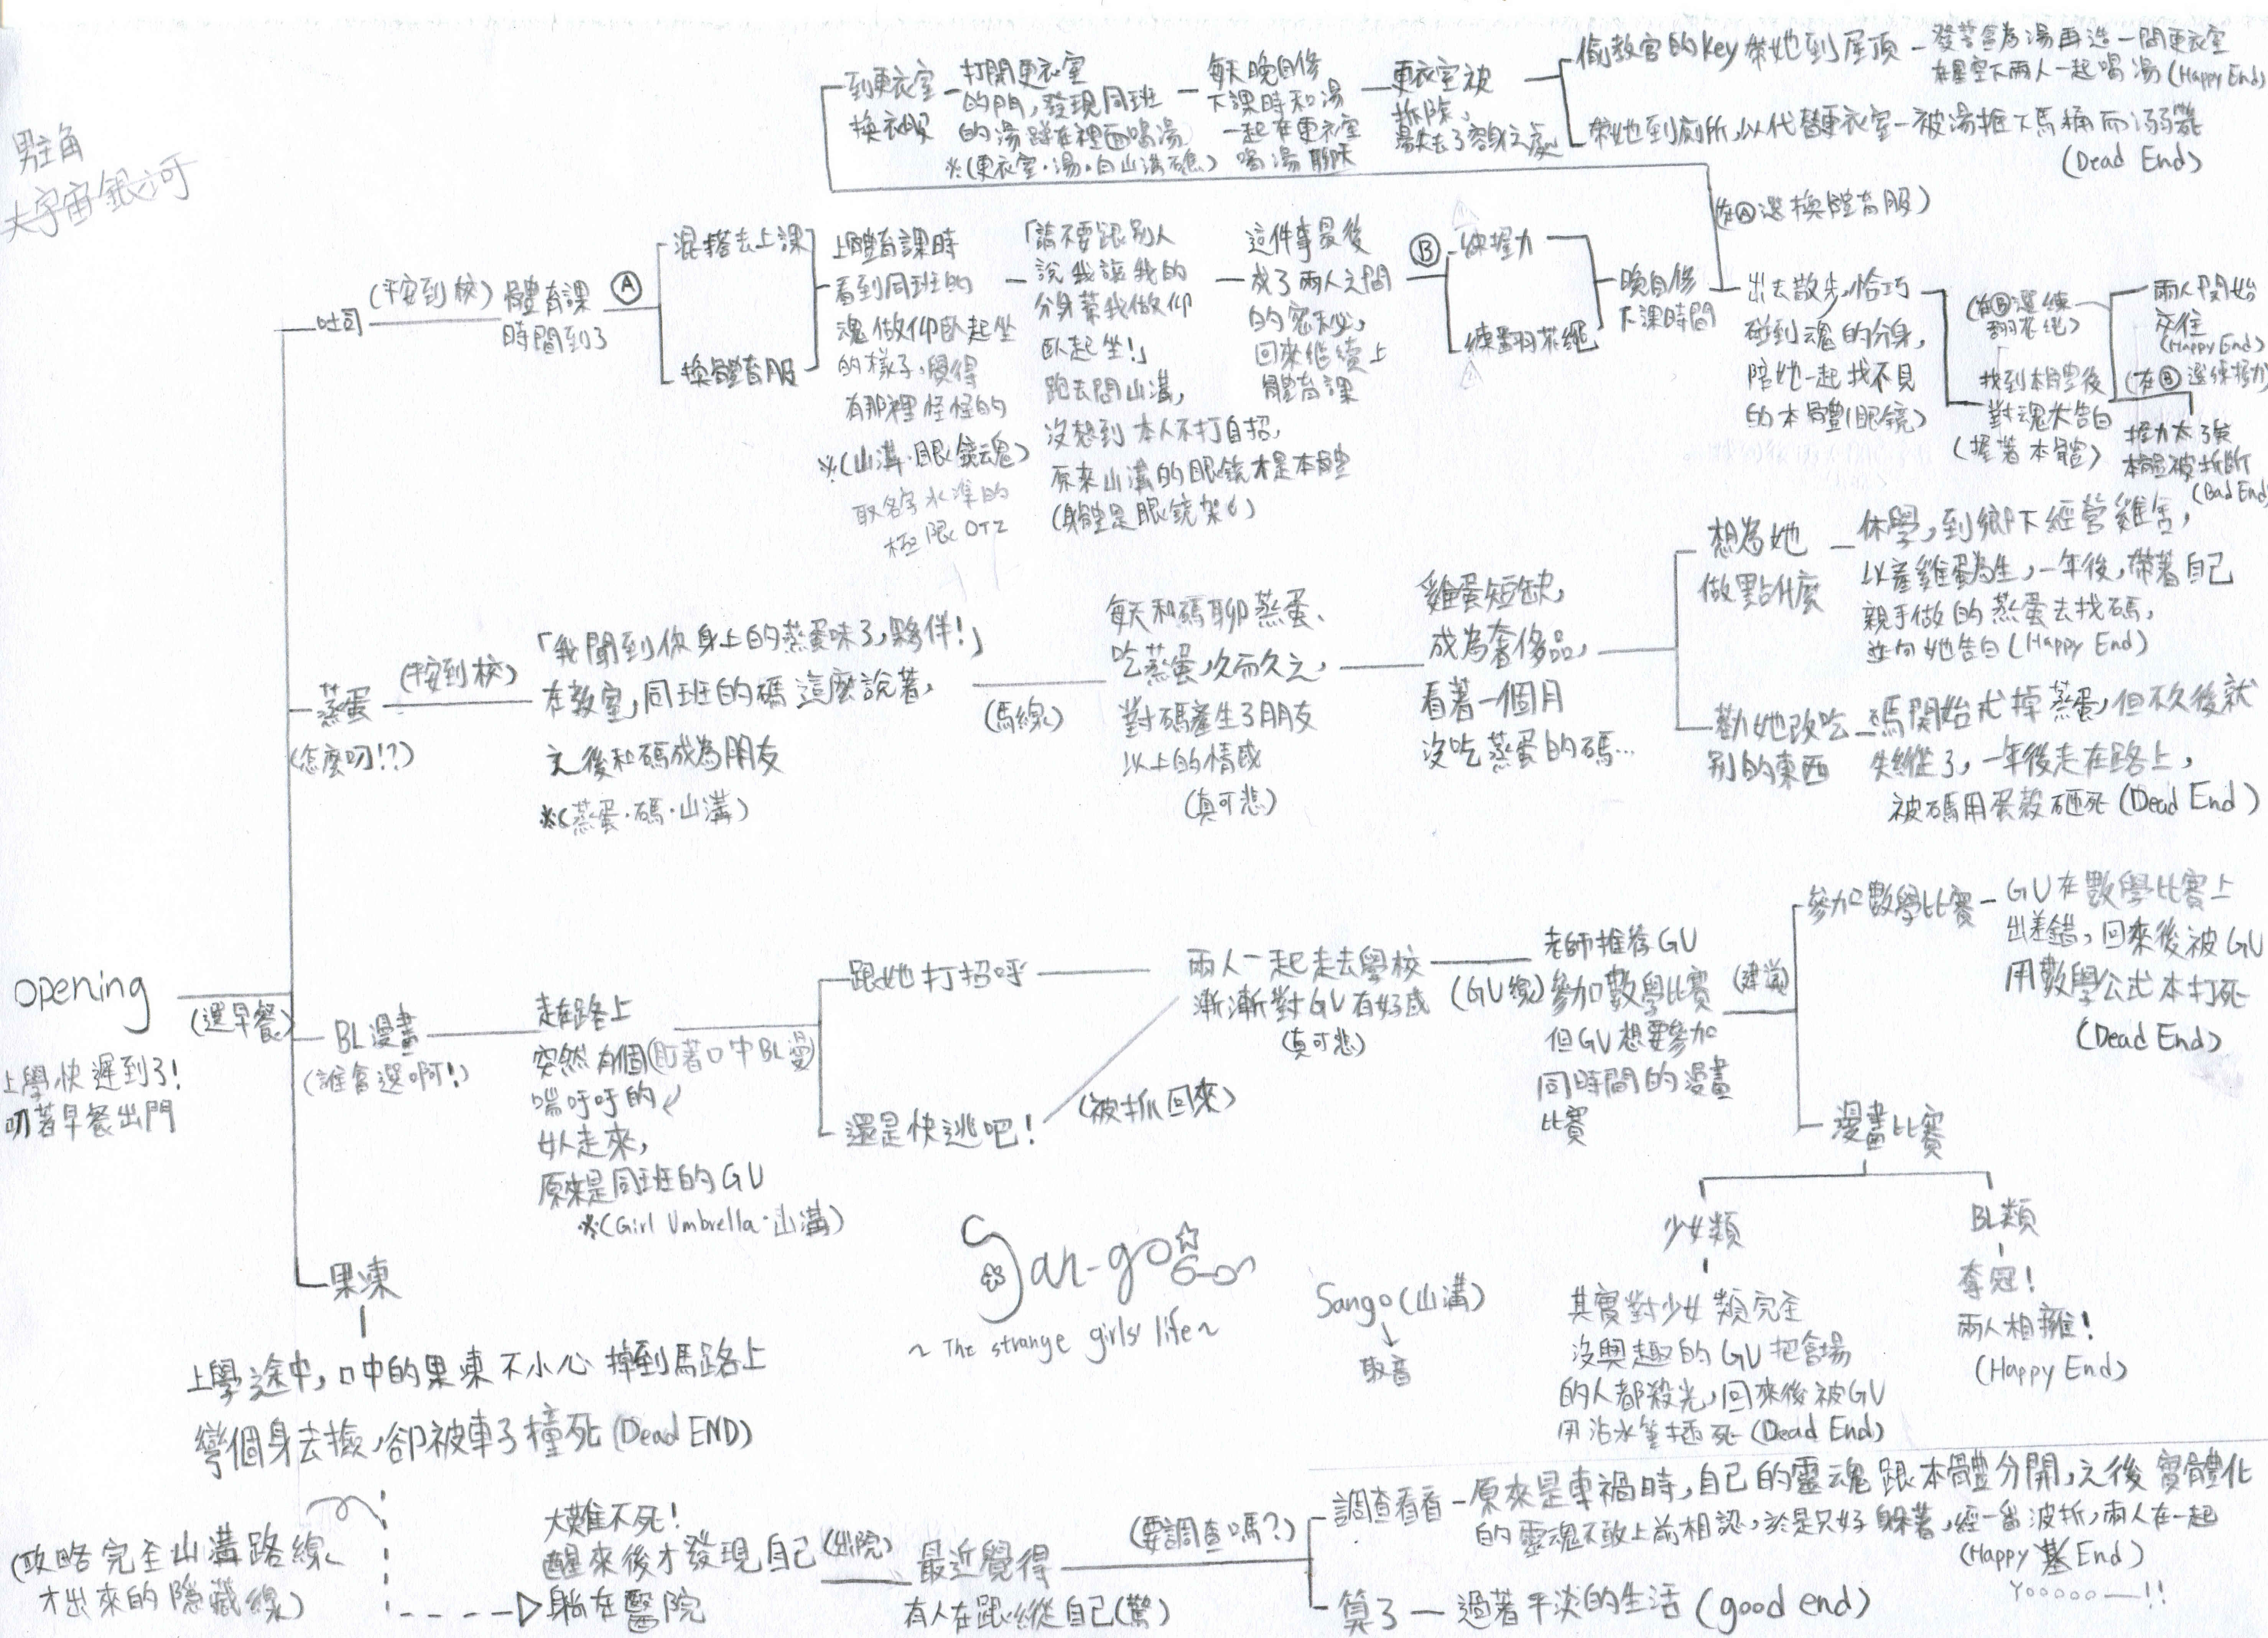 男主角
大宇宙銀河
到更衣室
換衣服
打開更衣室
的門,發現同班
的湯蹲在裡面喝湯
※(更衣室・湯・白山溝礁)
每天晚自修
下課時和湯
一起在更衣室
喝湯聊天
更衣室被
拆除,
湯失去了容身之處
偷教官的key帶她到屋頂
發誓會為湯再造一間更衣室
在星空下兩人一起喝湯(Happy End)
帶她到廁所,以代替更衣室
被湯推下馬桶而溺斃
(Dead End)
(在Ⓐ選換體育服)
吐司
(平安到校)
體育課
時間到了
Ⓐ
混搭去上課
換體育服
上體育課時
看到同班的
魂做仰臥起坐
的樣子,覺得
有那裡怪怪的
※(山溝・眼鏡魂)
取名字水準的
極限OTZ
「請不要跟別人
說我讓我的
分身幫我做仰
臥起坐!」
跑去問山溝,
沒想到本人不打自招,
原來山溝的眼鏡才是本體
(身體是眼鏡架)
這件事最後
成了兩人之間
的密秘,
回來繼續上
體育課
Ⓑ
練握力
練翻花繩
晚自修
下課時間
出去散步,恰巧
碰到魂的分身,
陪她一起找不見
的本體(眼鏡)
(在Ⓑ選練
翻花繩)
找到本體後
對魂大告白
(握著本體)
兩人開始
交往
(Happy End)
(在Ⓑ選練握力)
握力太強
本體被折斷
(Bad End)
蒸蛋
(怎麼叼!?)
(平安到校)
「我聞到你身上的蒸蛋味了,夥伴!」
在教室,同班的碼這麼說著,
之後和碼成為朋友
※(蒸蛋・碼・山溝)
(碼線)
每天和碼聊蒸蛋、
吃蒸蛋,久而久之,
對碼產生了朋友
以上的情感
(真可悲)
雞蛋短缺,
成為奢侈品,
看著一個月
沒吃蒸蛋的碼…
想為她
做點什麼
休學,到鄉下經營雞舍,
以產雞蛋為生,一年後,帶著自己
親手做的蒸蛋去找碼,
並向她告白(Happy End)
勸她改吃
別的東西
碼開始戒掉蒸蛋,但不久後就
失蹤了,一年後走在路上,
被碼用蛋殼砸死(Dead End)
opening
上學快遲到了!
叼著早餐出門
(選早餐)
BL漫畫
(誰會選啊!)
走在路上
突然有個(盯著口中BL漫)
喘吁吁的
女人走來,
原來是同班的GU
※(Girl Umbrella・山溝)
跟她打招呼
還是快逃吧!
(被抓回來)
兩人一起走去學校
漸漸對GU有好感
(真可悲)
(GU線)
老師推荐GU
參加數學比賽
但GU想要參加
同時間的漫畫
比賽
(建議)
參加數學比賽
GU在數學比賽上
出差錯,回來後被GU
用數學公式本打死
(Dead End)
漫畫比賽
少女類
其實對少女類完全
沒興趣的GU把會場
的人都殺光,回來後被GU
用沾水筆插死(Dead End)
BL類
奪冠!
兩人相擁!
(Happy End)
San-go
~ The strange girls' life ~
Sango(山溝)
取音
果凍
上學途中,口中的果凍不小心掉到馬路上
彎個身去撿,卻被車子撞死(Dead END)
(攻略完全山溝路線
才出來的隱藏線)
大難不死!
醒來後才發現自己
躺在醫院
(出院)
最近覺得
有人在跟蹤自己(驚)
(要調查嗎?)
調查看看
原來是車禍時,自己的靈魂跟本體分開,之後實體化
的靈魂不敢上前相認,於是只好躲著,經一番波折,兩人在一起
(Happy 基 End)
Yooooo—!!
算了
過著平淡的生活(good end)